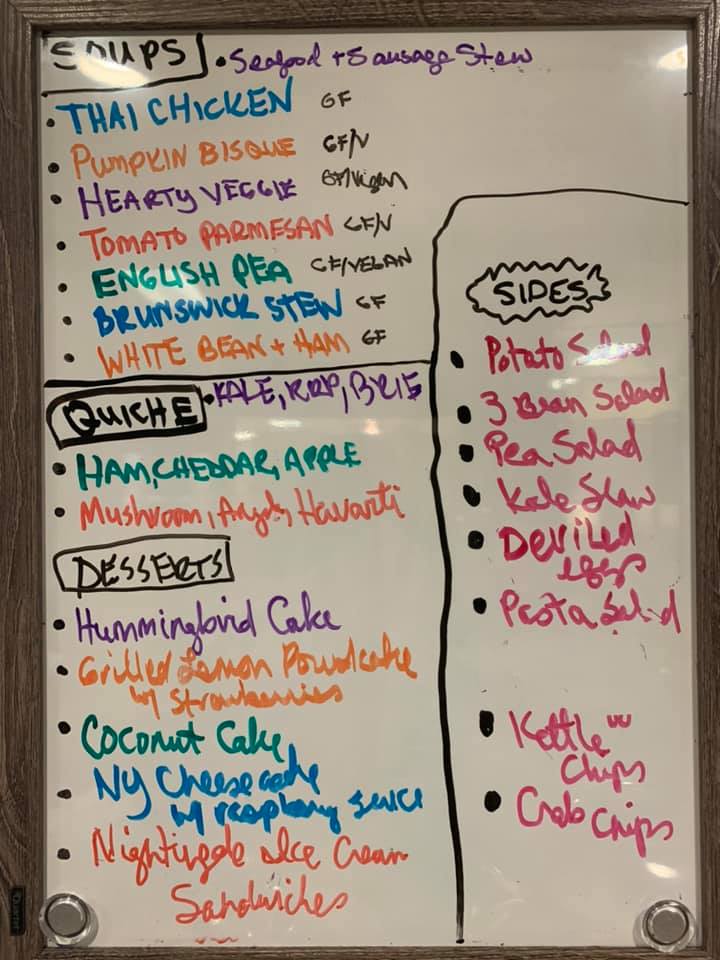 SOUPS • Seafood + Sausage Stew
• THAI CHICKEN GF
• PUMPKIN BISQUE GF/V
• HEARTY VEGGIE GF/Vegan
• TOMATO PARMESAN GF/V
• ENGLISH PEA GF/VEGAN
• BRUNSWICK STEW GF
• WHITE BEAN + HAM GF
QUICHE • KALE, RRP, BRIE
• HAM, CHEDDAR, APPLE
• Mushroom, Havarti
DESSERTS
• Hummingbird Cake
• Grilled Lemon Poundcake
w/ Strawberries
• Coconut Cake
• NY Cheesecake
w/ raspberry sauce
• Nightingale Ice Cream
Sandwiches
SIDES
• Potato Salad
• 3 Bean Salad
• Pea Salad
• Kale Slaw
• Deviled
eggs
• Pasta Salad
• Kettle
Chips
• Crab Chips
Quartet